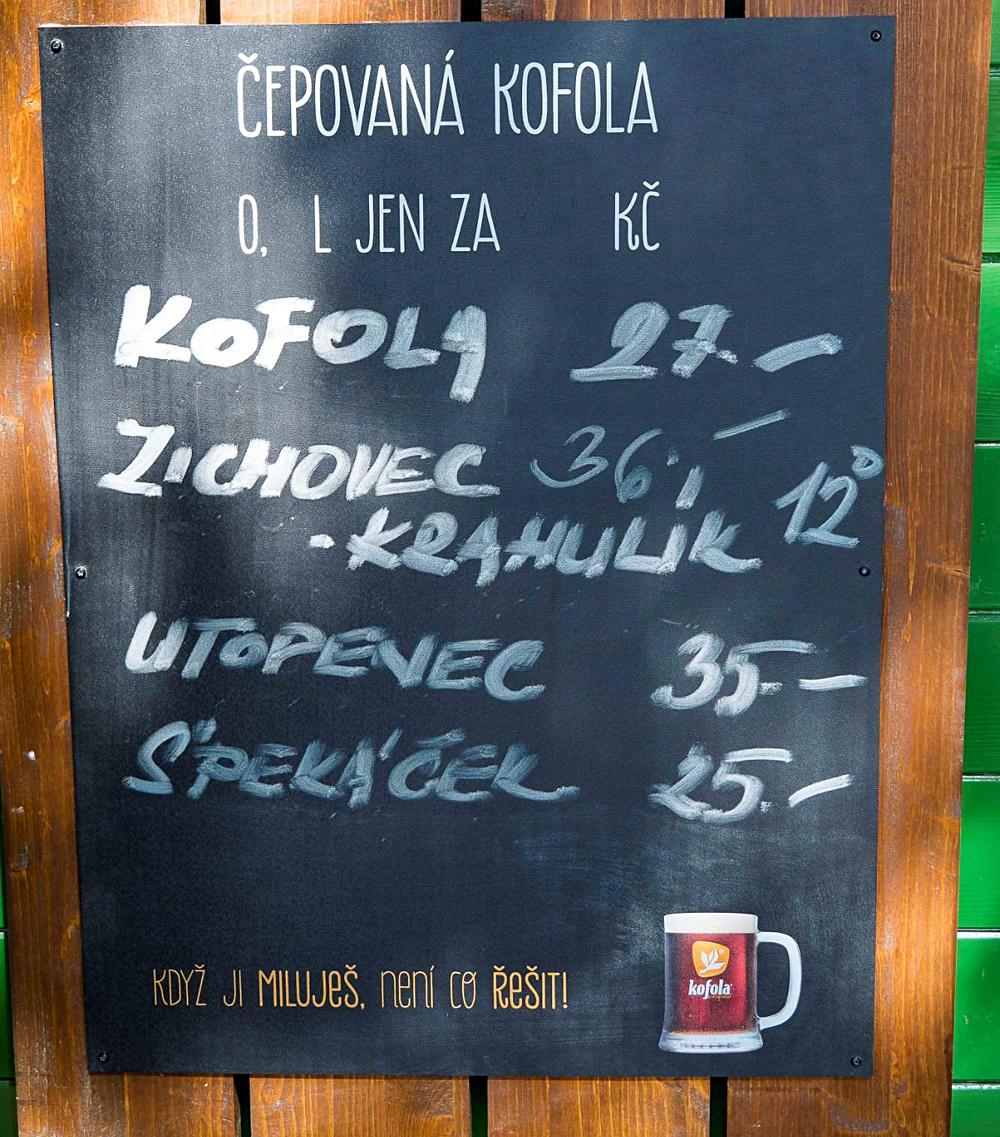 ČEPOVANÁ KOFOLA
0, L JEN ZA KČ
KOFOLA 27.-
ZICHOVEC 36,- 12°
- KRAHULÍK
UTOPENEC 35.-
ŠPEKÁČEK 25.-
KDYŽ JI MILUJEŠ, NENÍ CO ŘEŠIT!
kofola
originál